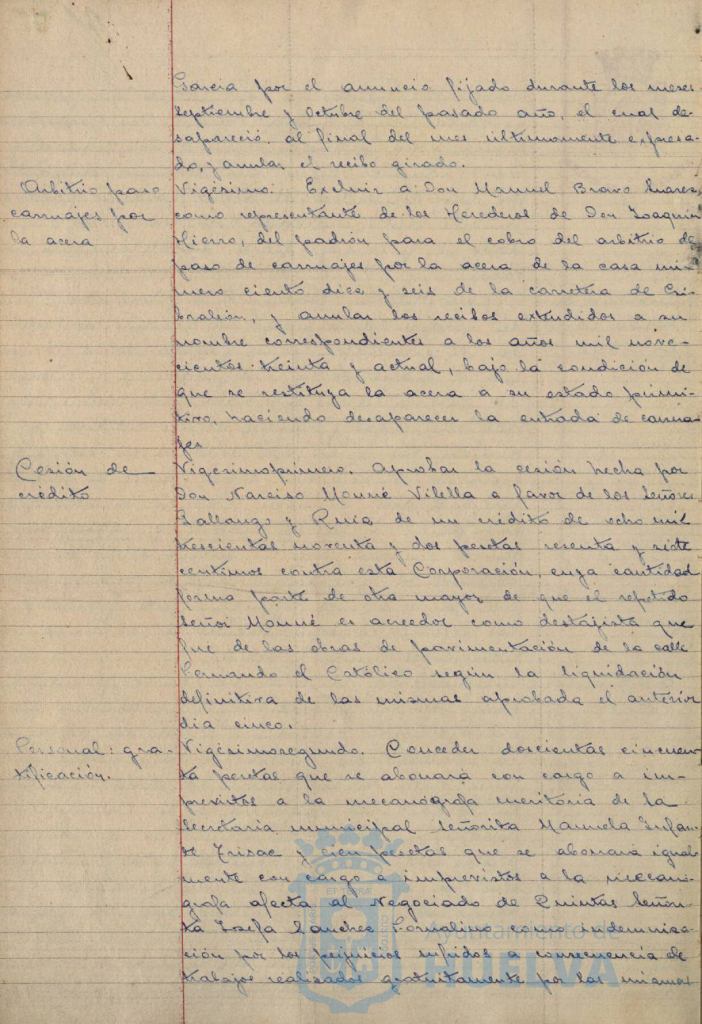 Garcia por el anuncio fijado durante los meses
Septiembre y Octubre del pasado año, el cual de-
sapareció al final del mes ultimamente expresa-
do, y anular el recibo girado.
Arbitrio paso
carruajes por
la acera
Vigésimo. Excluir a Don Manuel Bravo Suarez,
como representante de los Herederos de Don Joaquin
Hierro, del padrón para el cobro del arbitrio de
paso de carruajes por la acera de la casa nú-
mero ciento diez y seis de la carretera de Gi-
braleón, y anular los recibos extendidos a su
nombre correspondientes a los años mil nove-
cientos treinta y actual, bajo la condición de
que se restituya la acera a su estado primi-
tivo, haciendo desaparecer la entrada de carrua-
jes
Cesión de
crédito
Vigésimoprimero. Aprobar la cesión hecha por
Don Narciso Monné Vilella a favor de los Señores
Gallango y Ruiz de un crédito de ocho mil
trescientas noventa y dos pesetas sesenta y siete
centimos contra esta Corporación, cuya cantidad
forma parte de otra mayor de que el repetido
Señor Monné es acreedor como destajista que
fue de las obras de pavimentación de la calle
Fernando el Católico según la liquidación
definitiva de las mismas aprobada el anterior
dia cinco.
Personal: gra-
tificación.
Vigésimosegundo. Conceder doscientas cincuen-
ta pesetas que se abonará con cargo a im-
previstos a la mecanógrafa meritoria de la
Secretaria municipal Señorita Manuela Infan-
te y cien pesetas que se abonará igual
mente con cargo a imprevistos a la mecanó-
grafa afecta al Negociado de Quintas Señori-
ta Josefa Sanchez como indemniza-
ción por los perjuicios sufridos a consecuencia de
trabajos realizados gratuitamente por las mismas
Ayuntamiento de
HUELVA